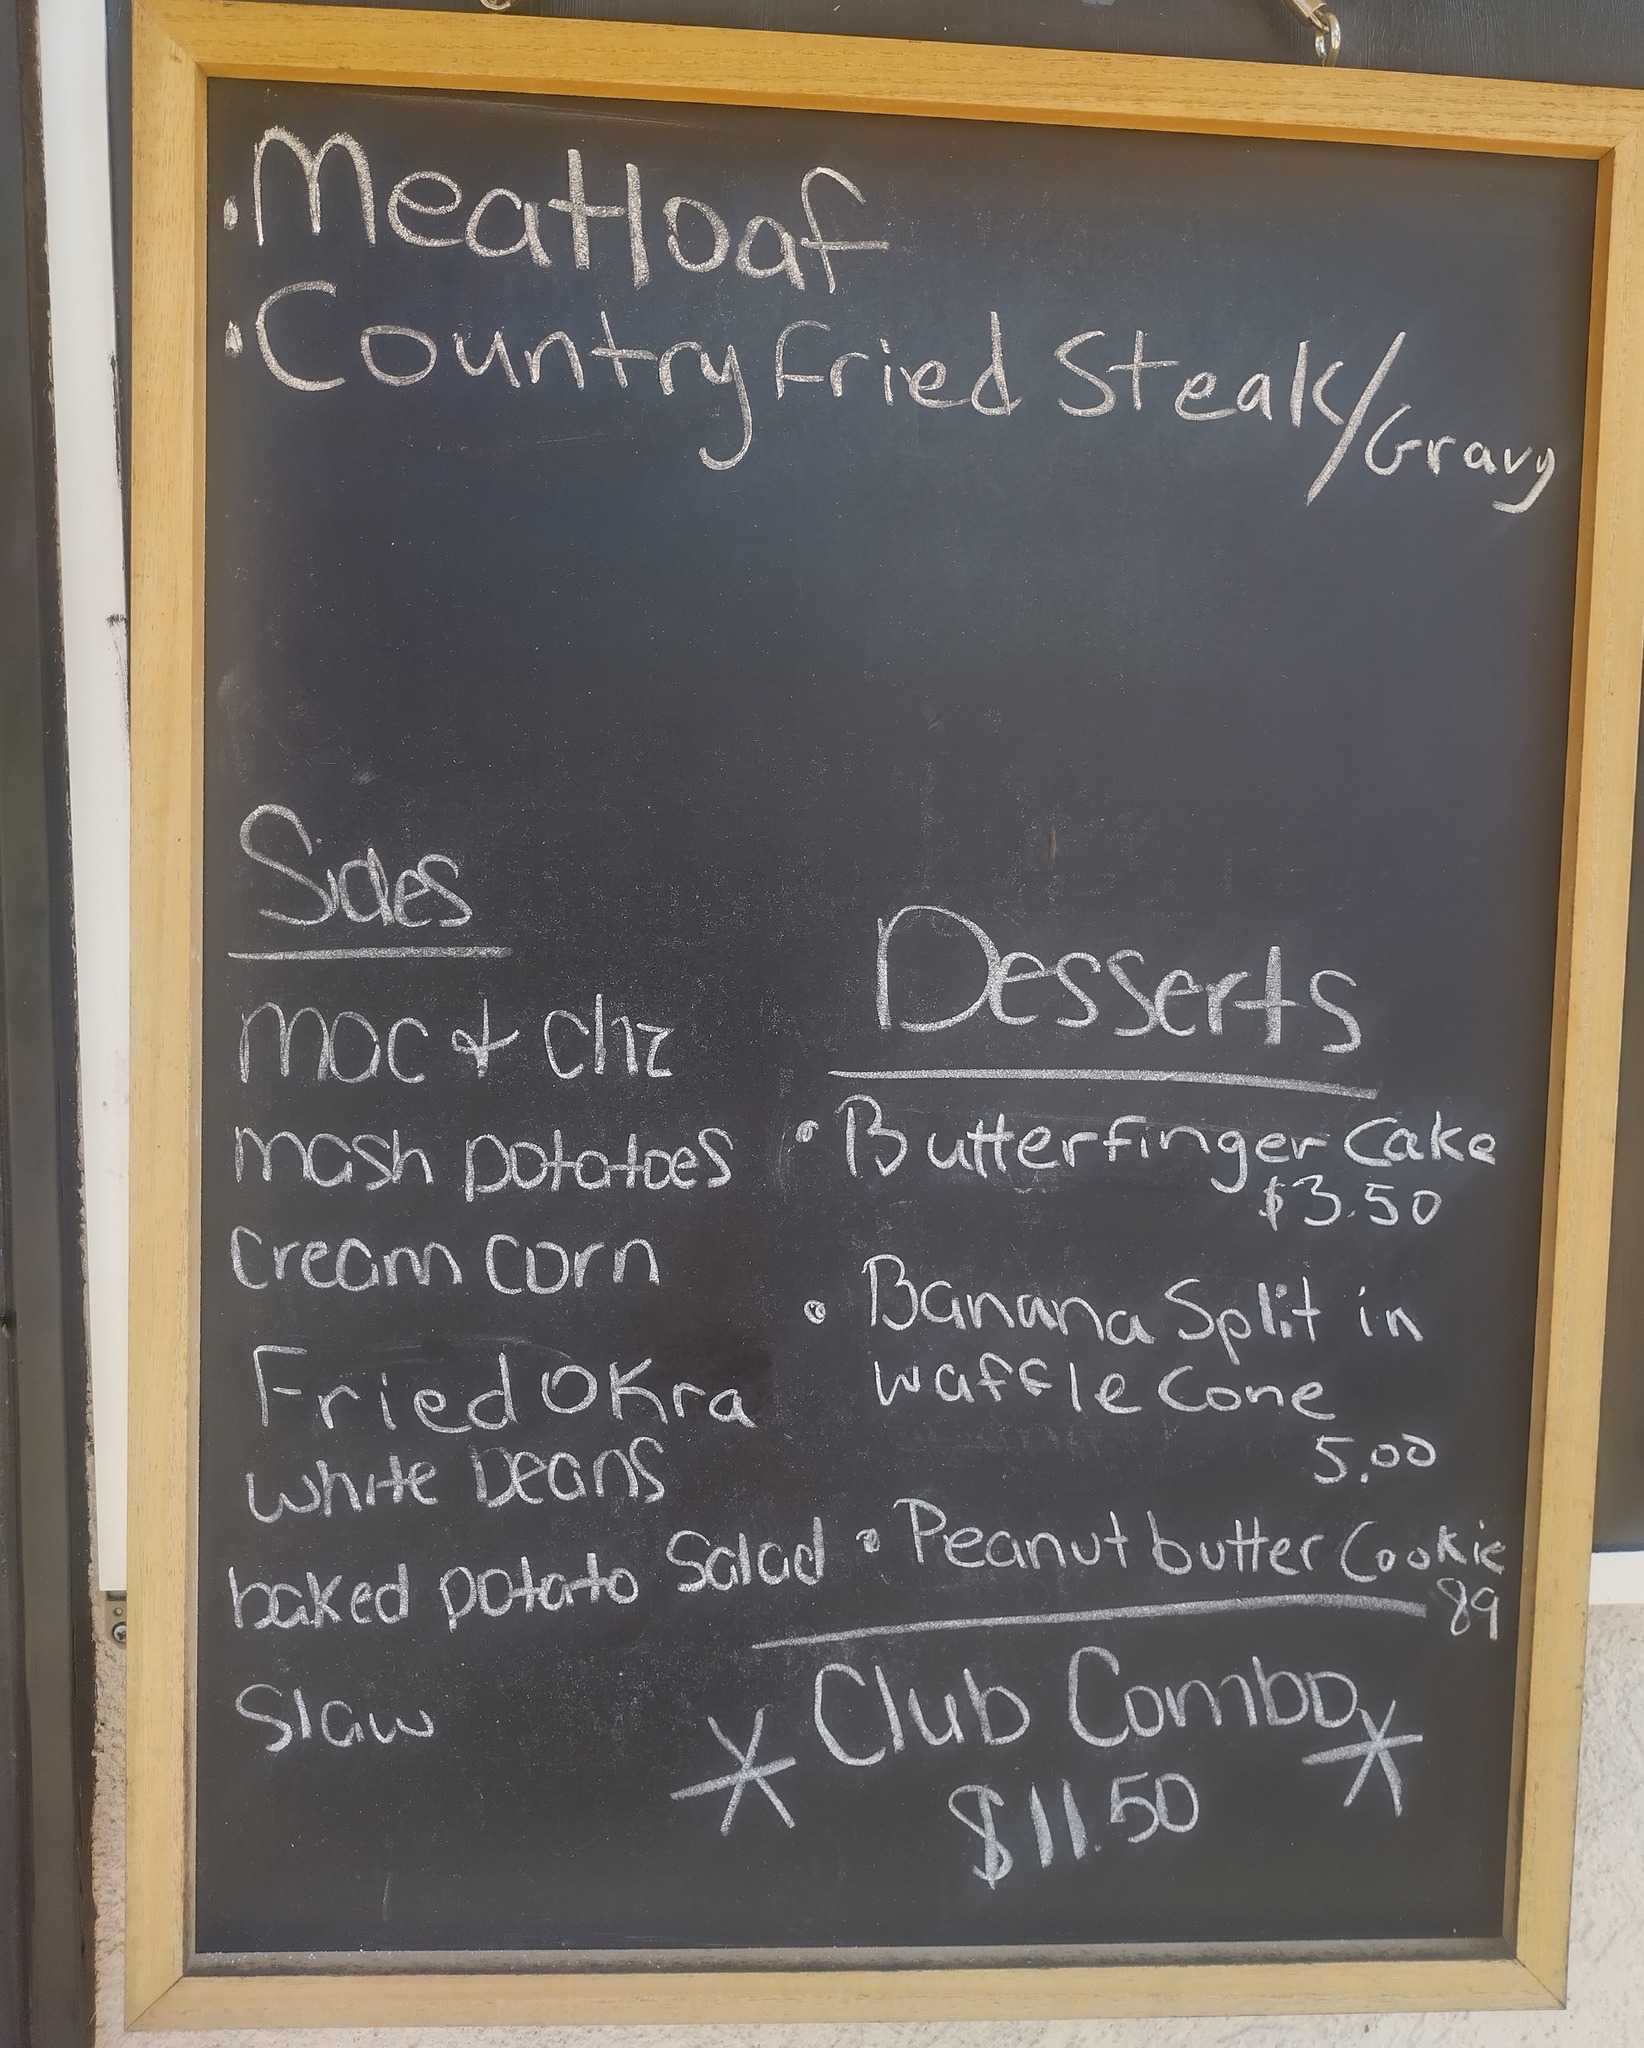 • Meatloaf
• Country Fried Steak/Gravy
Sides
mac & chz
mash potatoes
cream corn
Fried OKra
white beans
baked potato Salad
Slaw
Desserts
• Butterfinger Cake
$3.50
• Banana Split in
waffle Cone
5.00
• Peanut butter Cookie
89
* Club Combo *
$11.50